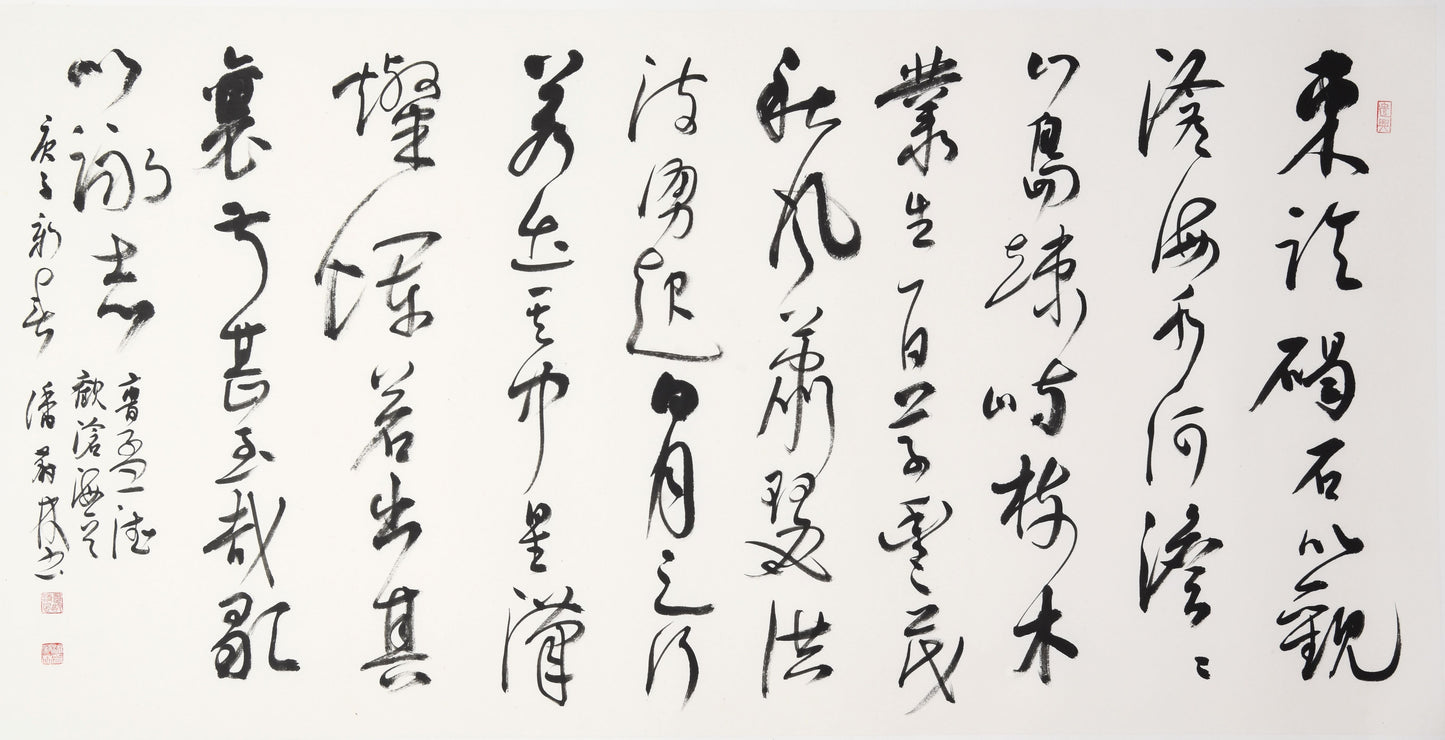 東臨碣石以觀
滄海水何澹〻
山島竦峙樹木
叢生百草豐茂
秋風蕭瑟洪
波湧起日月之行
若出其中星漢
燦爛若出其
裏幸甚至哉歌
以詠志
曹孟德
觀滄海
庚子新春
潘書